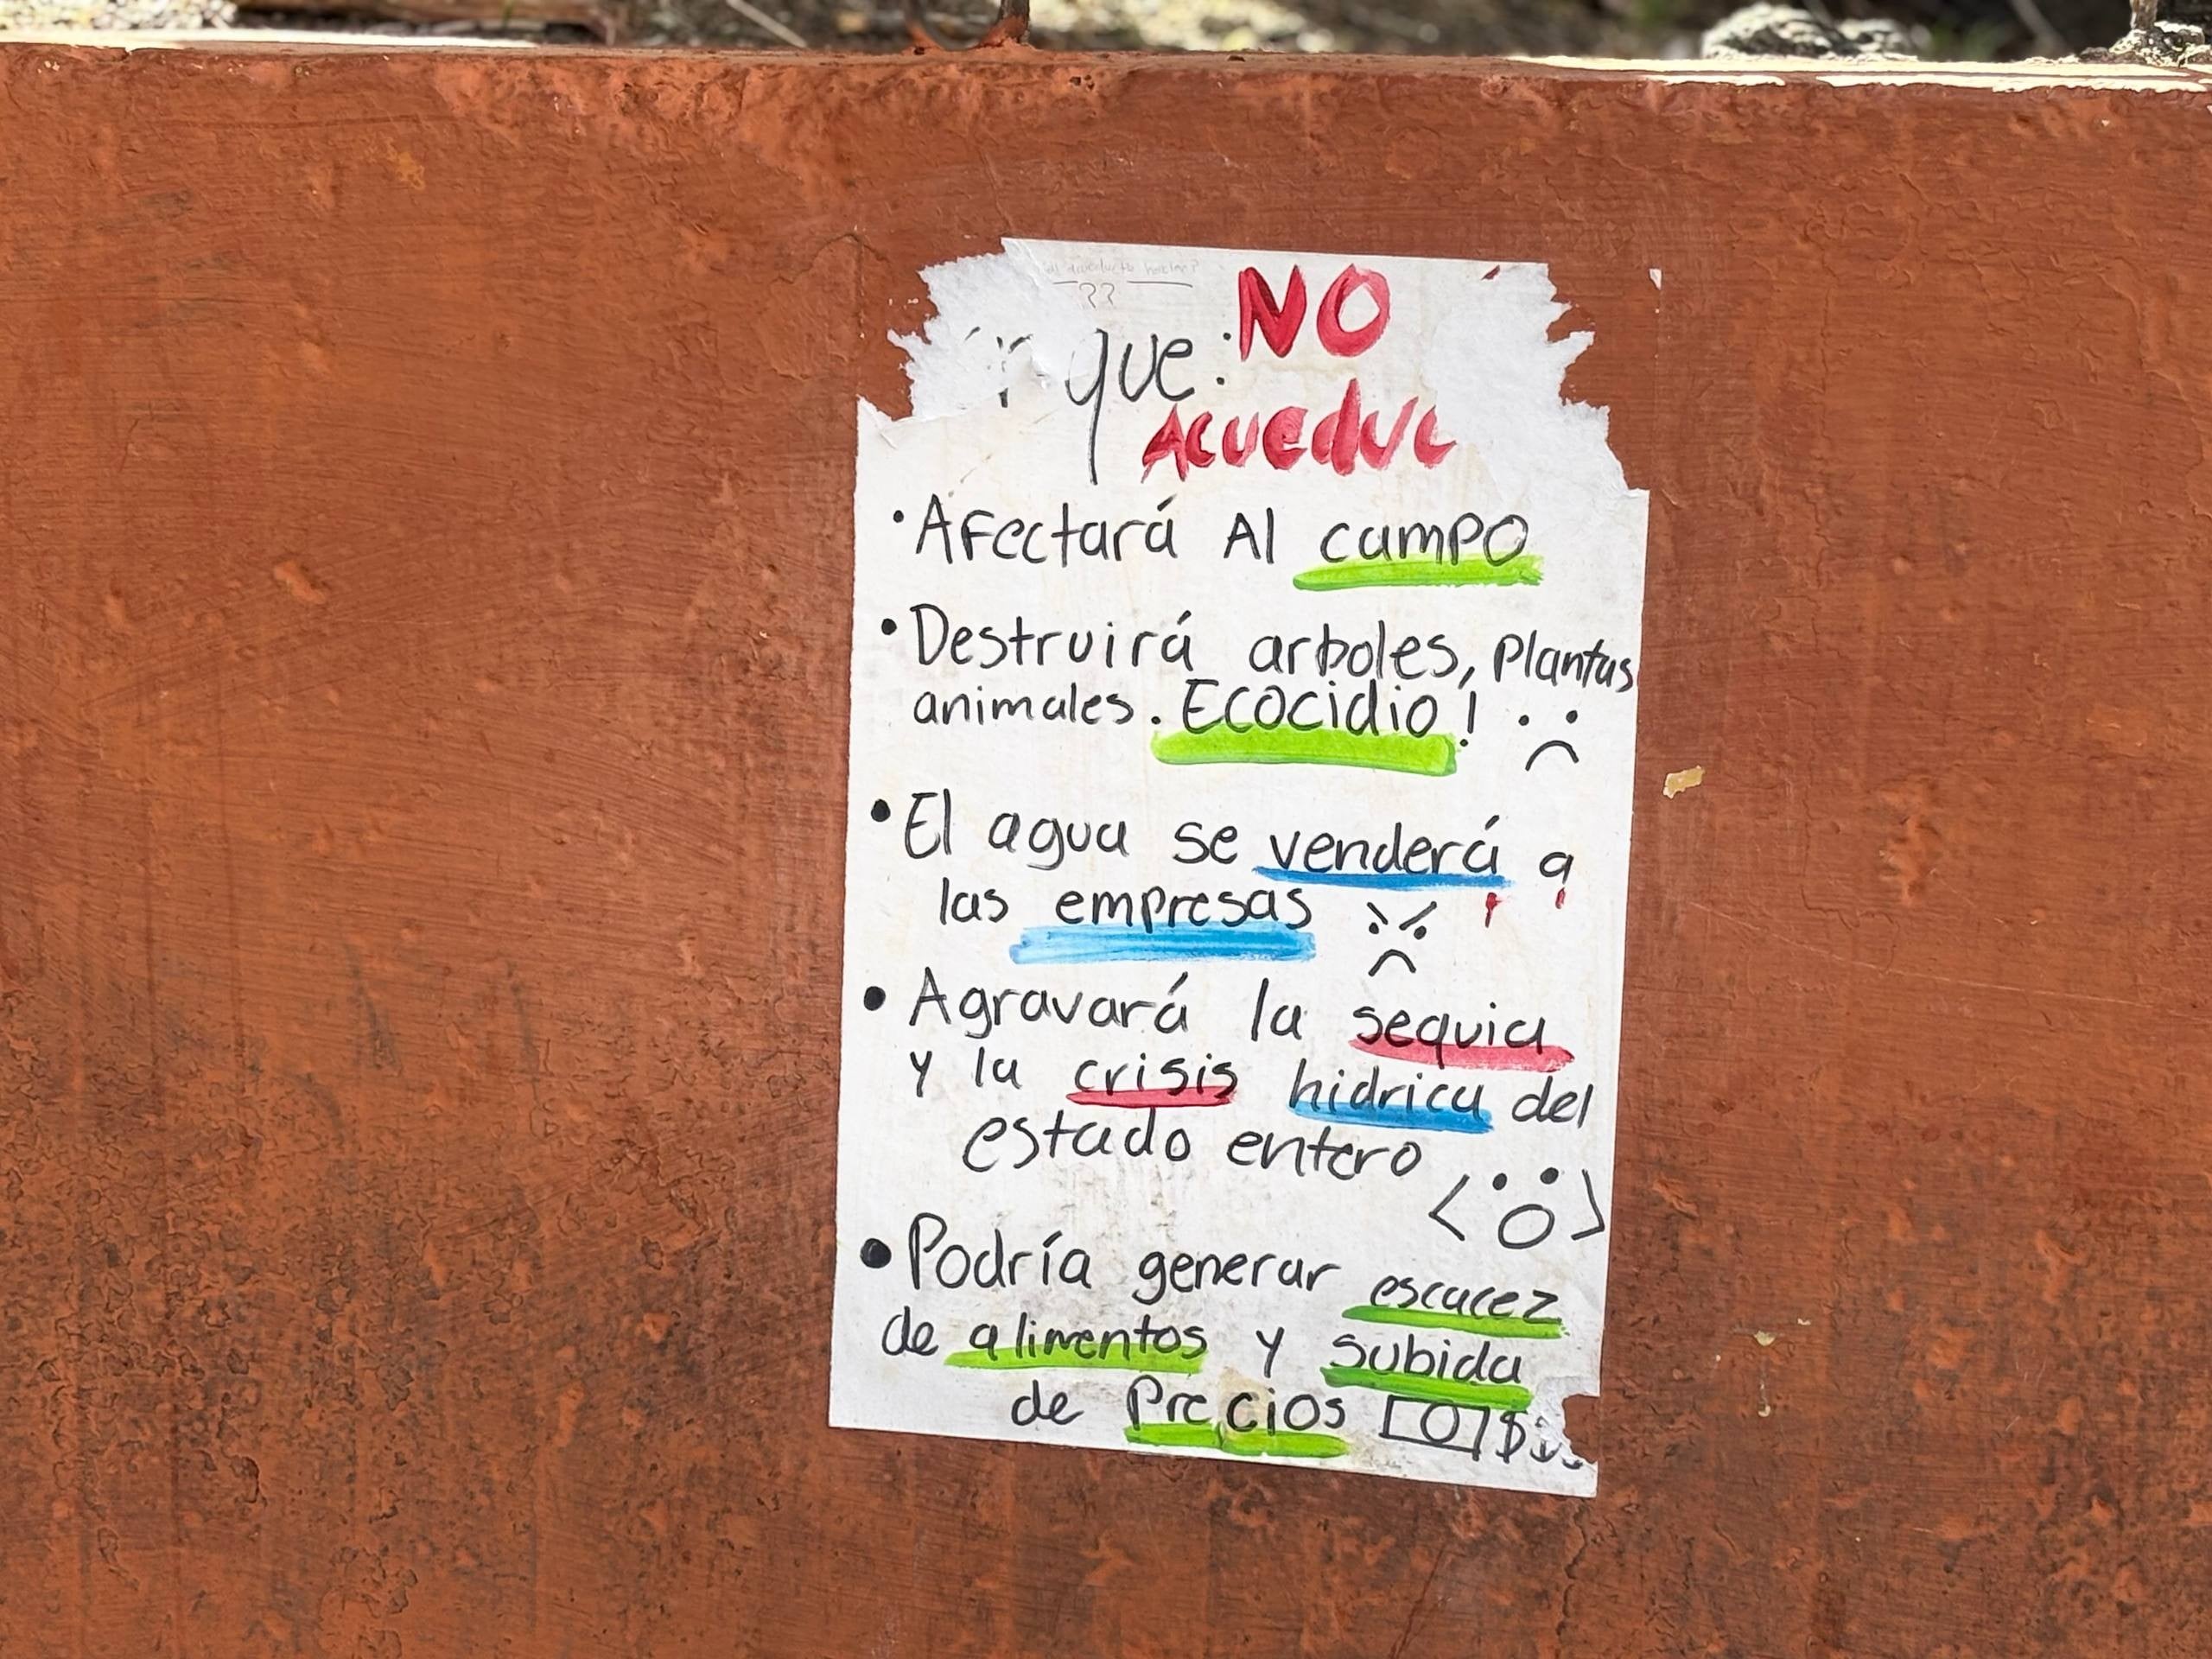 que: NO
ACUEDUC
• Afectará Al campo
• Destruirá arboles, Plantas
animales. Ecocidio!
• El agua se venderá a
las empresas
• Agravará la sequia
y la crisis hidrica del
estado entero
• Podría generar escacez
de alimentos y subida
de Precios $